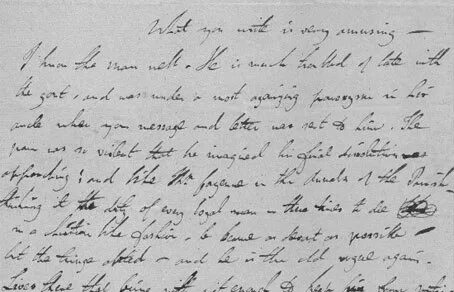 What you write is very amusing —
I know the man well. He is much troubled of late with
the gout, and was under a most agonizing paroxysm in his
ancle when your message and letter was sent to him. The
pain was so violent that he imagined his final dissolution was
approaching; and like the in the of the Parish
thinking it the duty of every loyal man in these times to die
in a christian like fashion, he became as decent as possible
but the twinge abated — and he is the old rogue again.
there that being with